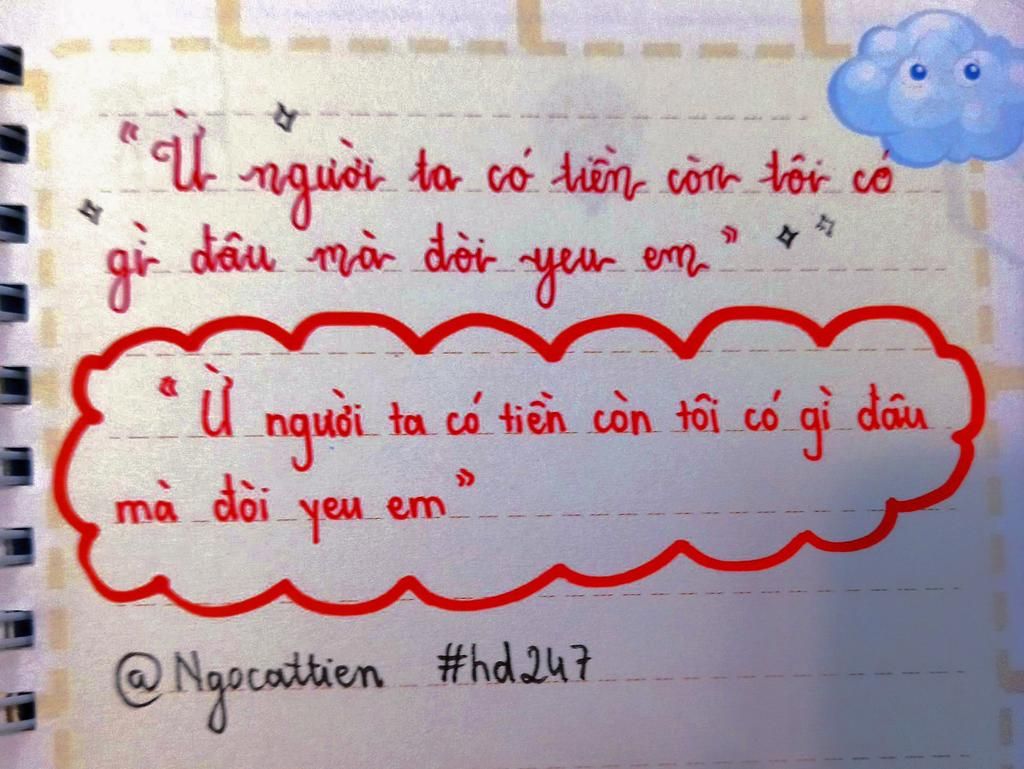 “Ừ người ta có tiền còn tôi có
gì đâu mà đòi yeu em”
“Ừ người ta có tiền còn tôi có gì đâu
mà đòi yeu em”
@Ngocattien #hd247